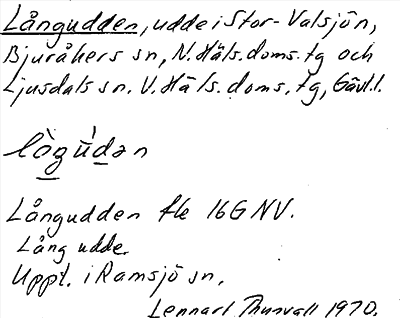 Långudden, udde i Stor-Valsjön,
Bjuråkers sn, N. Häls. doms. tg och
Ljusdals sn. V. Häls. doms. tg, Gävl.l.
Långudden fle 16G NV.
Lång udde.
Uppt. i Ramsjö sn,
Lennart Thunvall 1970.